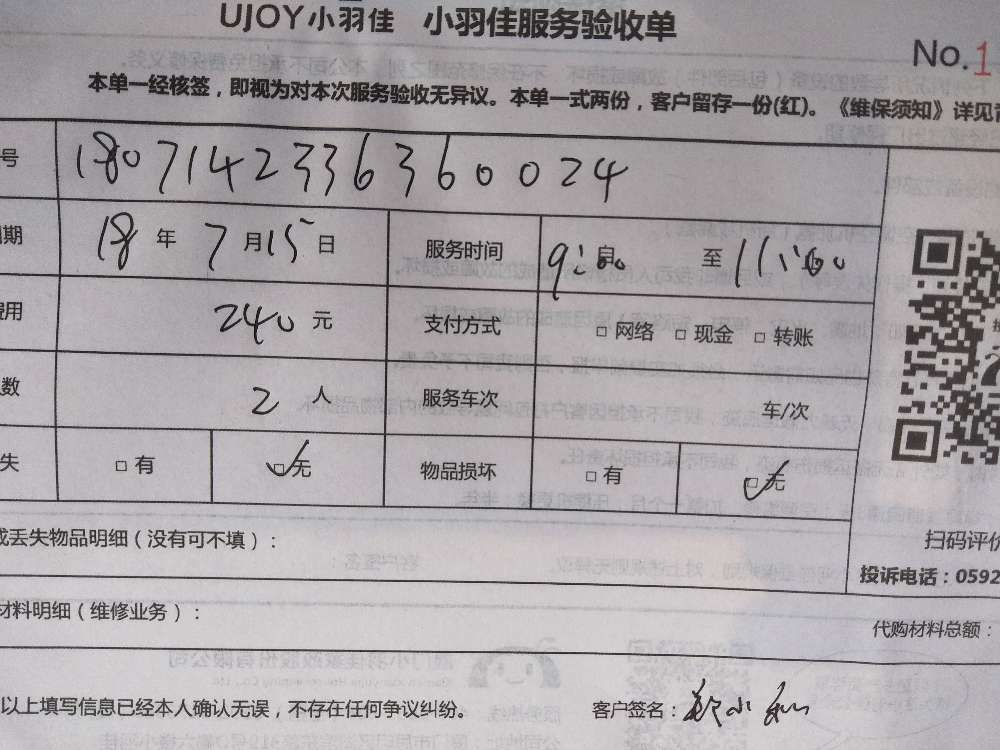 UJOY小羽佳 小羽佳服务验收单
No.1
本单一经核签，即视为对本次服务验收无异议。本单一式两份，客户留存一份(红)。《维保须知》详见背
号 1807142336360024
期 18 年 7 月 15 日 服务时间 9:00 至 11:00
费用 240 元 支付方式 □ 网络 □ 现金 □ 转账
数 2 人 服务车次 车/次
失 □ 有 □ 无 物品损坏 □ 有 □ 无
或丢失物品明细（没有可不填）：
扫码评价
投诉电话：0592
材料明细（维修业务）：
代购材料总额：
以上填写信息已经本人确认无误，不存在任何争议纠纷。 客户签名：